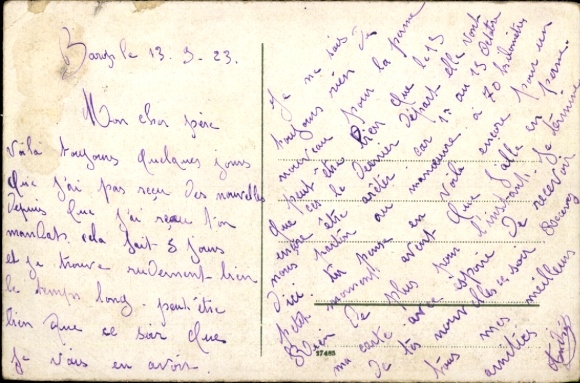 Barvy le 13-9-23.
Mon cher père
Voila toujours quelques jours
que j'ai pas reçu des nouvelles
depuis que j'ai reçu ton
mandats cela fait 5 jours
et je trouve rudement bien
le temps long. peut-être
bien que ce soir que
je vais en avoir.
Je ne sais
toujours rien de
nouveau pour la perme
peut-être bien que le 13
que c'est le dernier départ elle vont
encore être arrêter car 1er au 15 Octobre
nous partir au manoeuvre à 70 kilomètres
d'ici tu pense voilà encore pour un
petit moment avant que j'aille en perme.
Rien de plus pour l'instant. Je termine
ma carte avec espoir de recevoir
de tes nouvelles ce soir. Recevez
tous mes meilleurs
amitiés
57485